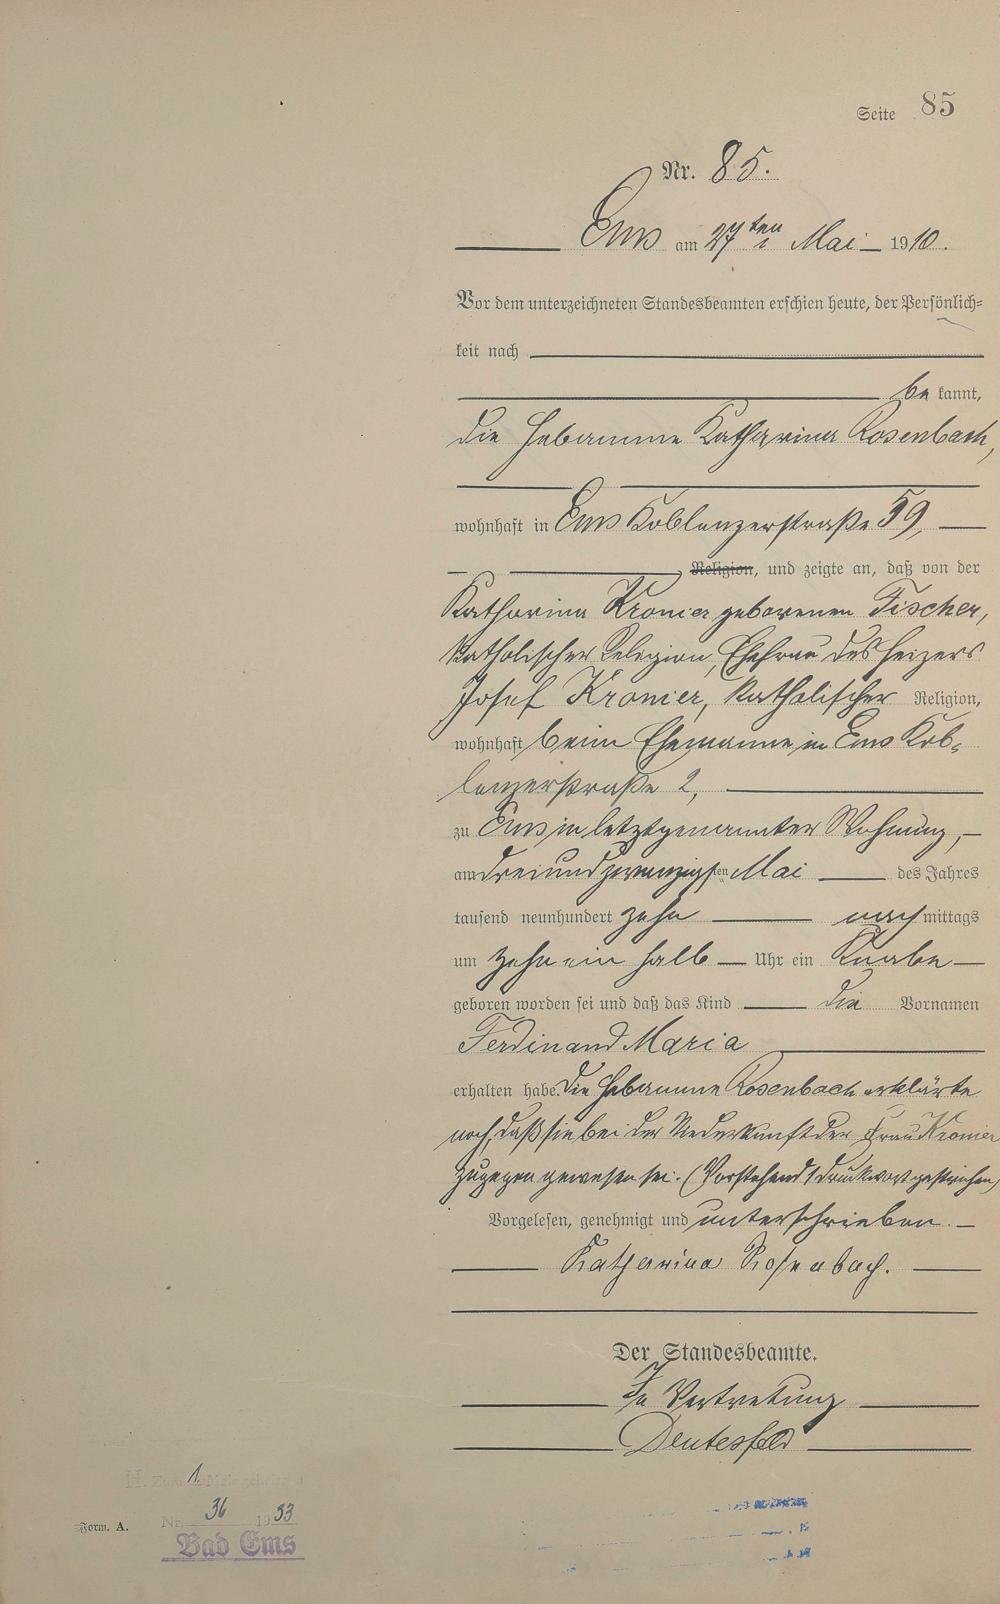 Seite 85
Nr. 85.
Ems am 27ten Mai 1910.
Vor dem unterzeichneten Standesbeamten erschien heute, der Persönlich=
keit nach
be kannt,
die Hebamme Katharina Rosenbach,
wohnhaft in Ems Koblenzerstraße 59,
Religion, und zeigte an, daß von der
Katharina Kronier geborenen Fischer,
katholischer Religion, Ehefrau des Heizers
Josef Kronier, katholischer Religion,
wohnhaft beim Ehemanne in Ems Kob=
lenzerstraße 2,
zu Ems in letztgenannter Wohnung,
am dreiundzwanzigsten Mai des Jahres
tausend neunhundert zehn nachmittags
um zehn ein halb Uhr ein Knabe
geboren worden sei und daß das Kind die Vornamen
Ferdinand Maria
erhalten habe. Die Hebamme Rosenbach erklärte
noch, daß sie bei der Niederkunft der Frau Kronier
zugegen gewesen sei. (Vorstehend 1 Druckwort gestrichen)
Vorgelesen, genehmigt und unterschrieben.
Katharina Rosenbach.
Der Standesbeamte.
In Vertretung
Deutesfeld
H. 1
Form. A. Nr. 36 1933
Bad Ems